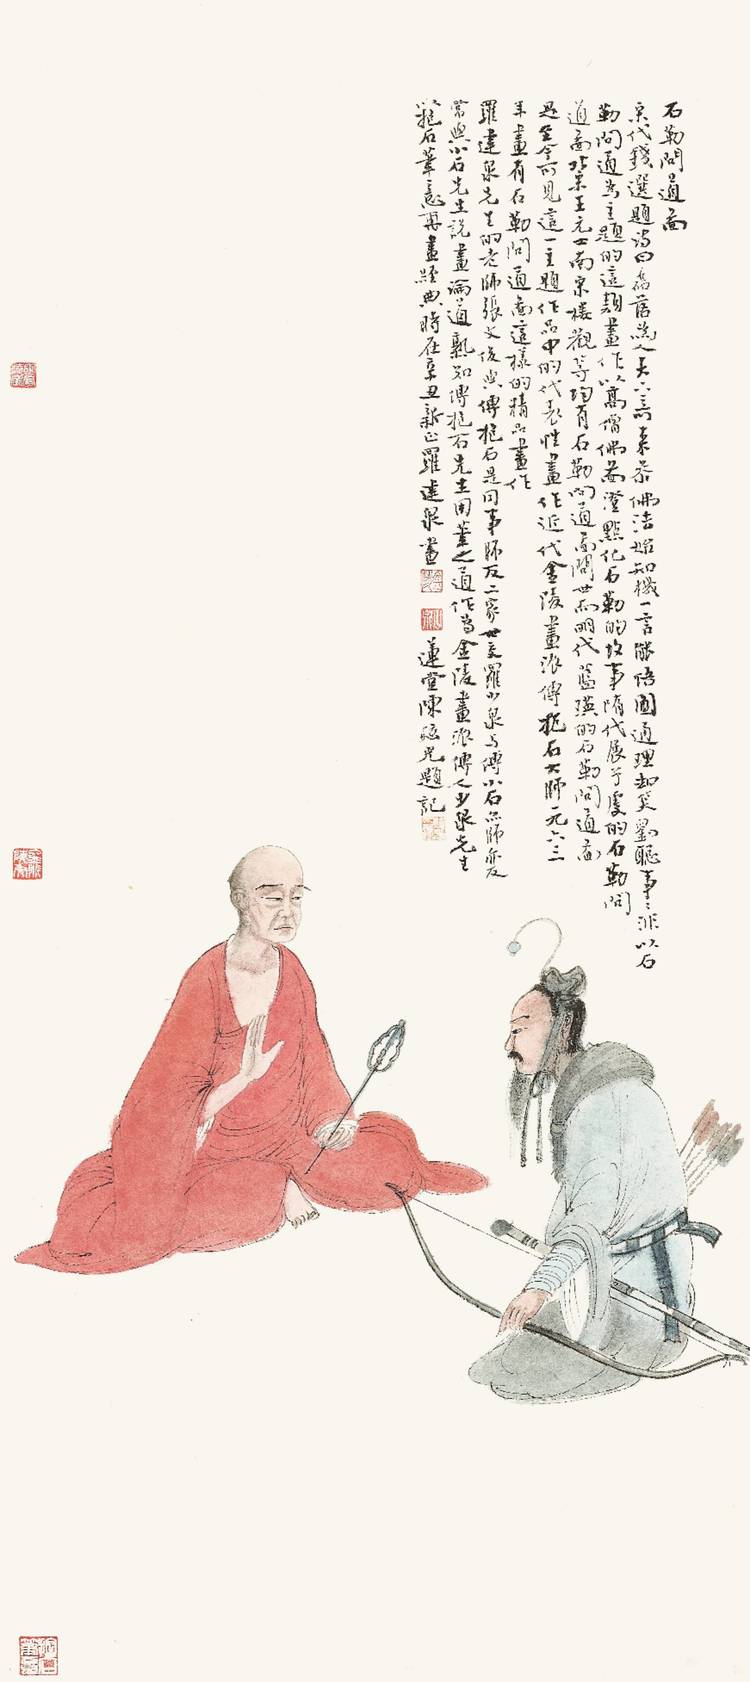 石勒問道圖
宋代錢選題詩曰為舊流人天六 素恭佛法始知機一言能悟圓通理却笑劉聰事事非以石
勒問道為主題的這類畫作以高僧佛圖澄點化石勒的故事隋代展子虔的石勒問
道圖北宋王元士南宋樓觀等均有石勒問道圖問世而明代藍瑛的石勒問道圖
是至今可見這一主題作品中的代表性畫作近代金陵畫派傅抱石大師一九六三
年畫有石勒問道圖這樣的精品畫作
羅建泉先生的老師張文俊與傅抱石是同事師友二家世交羅少泉與傅小石亦師亦友
常與小石先生說畫論道熟知傅抱石先生用筆之道作為金陵畫派傳人少泉先生
以抱石筆意再畫經典時在辛丑新正羅建泉畫
蓮堂陳 光題記